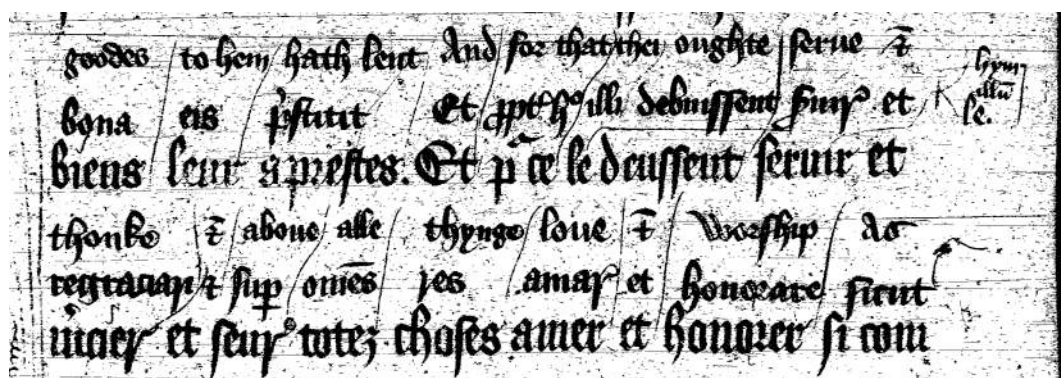 goodes to hem hath lent And for that thei oughte serue &
bona eis p̄stitit Et ꝓpt̄ h° illi debuissent ſuir̉ et
biens leur a prestes. Et p̄ ce le deussent seruir et
hym
illū
le.
thonke & aboue alle thynge loue & worship As
regraciari & sup̱ om̄es res amar̉ et honorare sicut
m̉cier et seur̉ totez choses amer et honorer si com